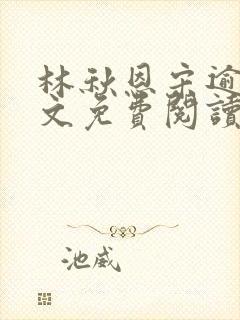 林秋恩宋逾
文免費閱讀
池威